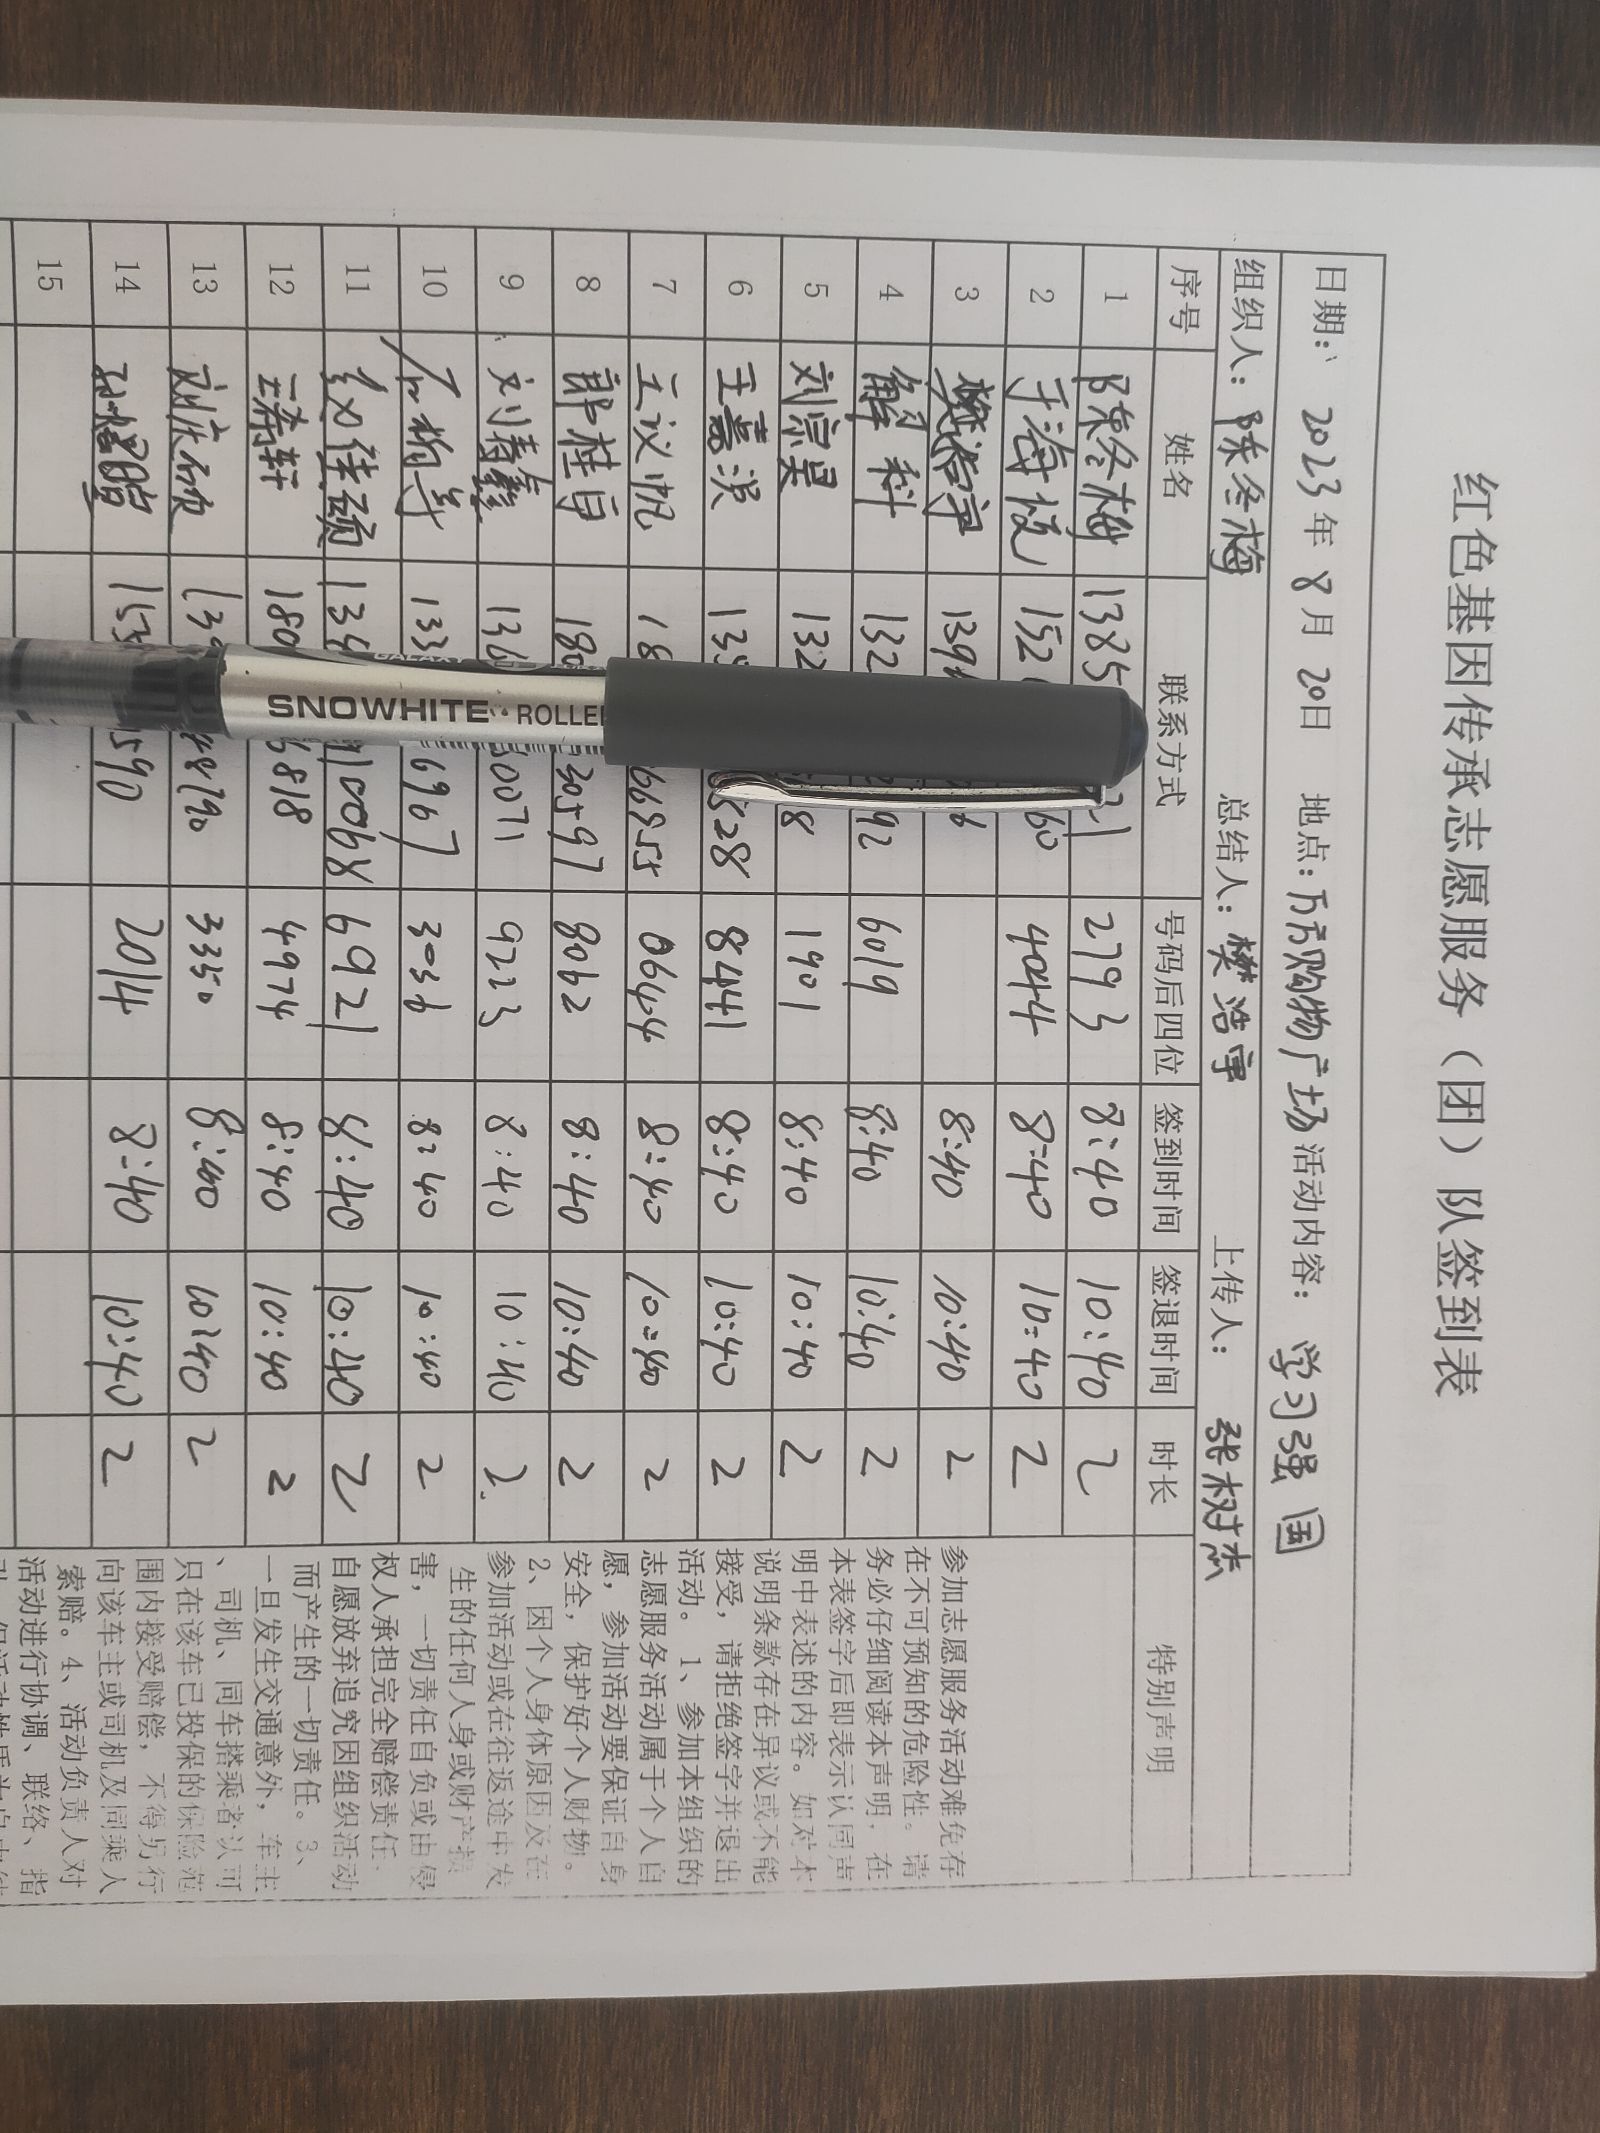 红色基因传承志愿服务（团）队签到表
日期： 2023年 8月 20日 地点：万方购物广场 活动内容： 学习强国
组织人：陈冬梅 总结人：樊浩宇 上传人： 张树杰
序号 姓名 联系方式 号码后四位 签到时间 签退时间 时长 特别声明
1 陈冬梅 1385 2793 8:40 10:40 2
2 于海悦 152 60 4044 8:40 10:40 2
3 樊浩宇 139 6 8:40 10:40 2
4 解科 132 92 6019 8:40 10:40 2
5 刘宗昊 132 8 1901 8:40 10:40 2
6 王嘉淇 13 528 8441 8:40 10:40 2
7 王议帆 18 66955 0644 8:40 10:40 2
8 郎桂宇 180 30597 8062 8:40 10:40 2
9 刘 136 0071 9223 8:40 10:40 2
10 133 6967 3036 8:40 10:40 2
11 139 10068 6921 8:40 10:40 2
12 王希轩 180 6818 4974 8:40 10:40 2
13 刘庆硕 139 8790 3350 8:40 10:40 2
14 155 590 2014 8:40 10:40 2
15
参加志愿服务活动难免存
在不可预知的危险性。请
务必仔细阅读本声明，在
本表签字后即表示认同声
明中表述的内容。如对本
说明条款存在异议或不能
接受，请拒绝签字并退出
活动。1、参加本组织的
志愿服务活动属于个人自
愿，参加活动要保证自身
安全，保护好个人财物。
2、因个人身体原因及在
参加活动或在往返途中发
生的任何人身或财产损
害，一切责任自负或由侵
权人承担完全赔偿责任，
自愿放弃追究因组织活动
而产生的一切责任。3、
一旦发生交通意外，车主
、司机、同车搭乘者认可
只在该车已投保的保险范
围内接受赔偿，不得另行
向该车主或司机及同乘人
索赔。4、活动负责人对
活动进行协调、联络、指
SNOWHITE ROLLE